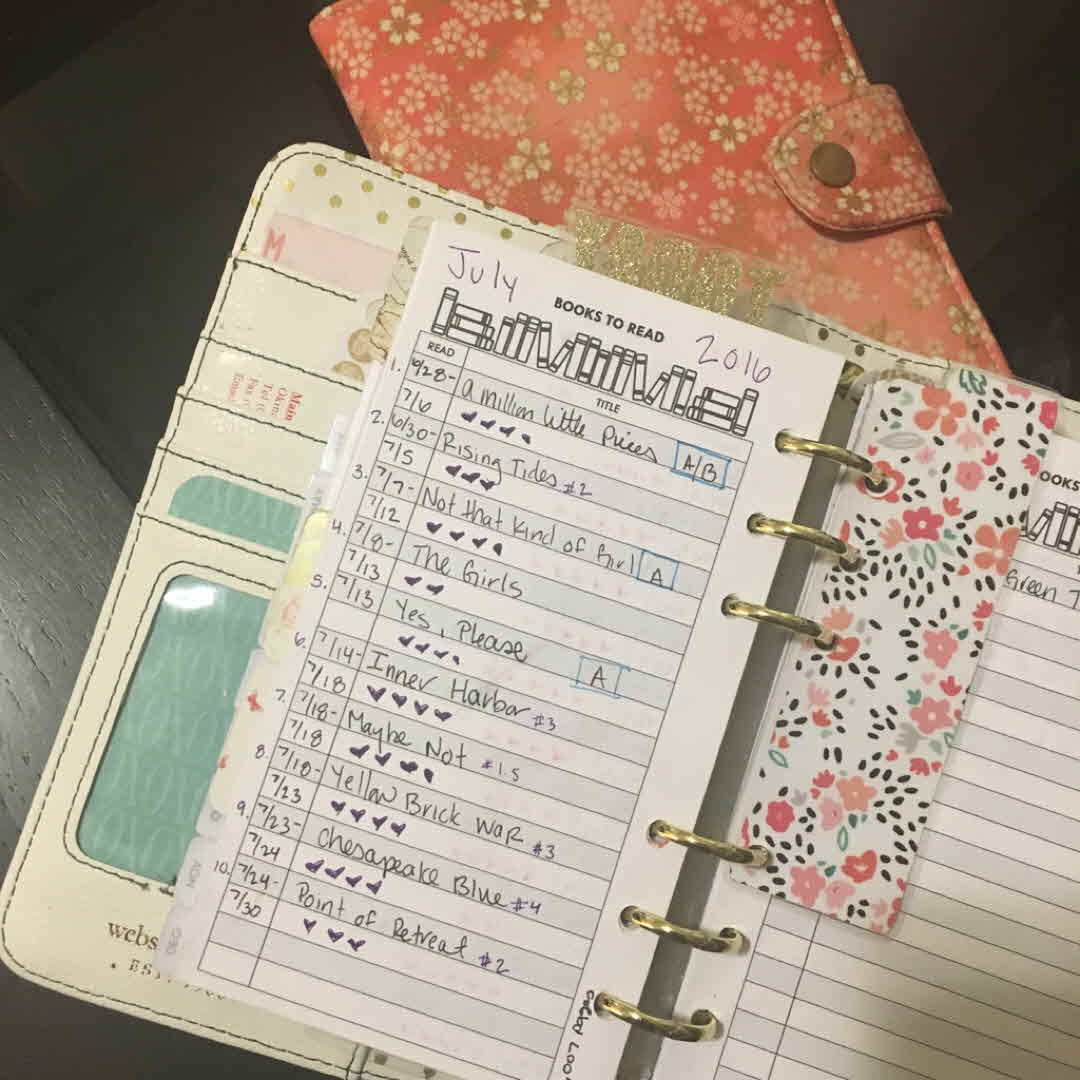 July
BOOKS TO READ
2016
READ
TITLE
1. 6/28- a million little Pieces A/B
7/6
2. 6/30- Rising Tides #2
7/5
3. 7/7- Not that Kind of Girl A
7/12
4. 7/8- The Girls
7/13
5. 7/13 Yes, Please
A
6. 7/14- Inner Harbor #3
7/18
7. 7/18- Maybe Not #1.5
7/18
8. 7/18- Yellow Brick War #3
7/23
9. 7/23- Chesapeake Blue #4
7/24
10. 7/24- Point of Retreat #2
7/30
M
Main
webs
EST.
NOV
DEC
Green T